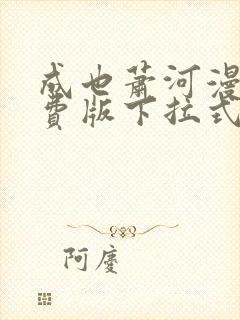 成也萧河漫
费版下拉式
阿廖